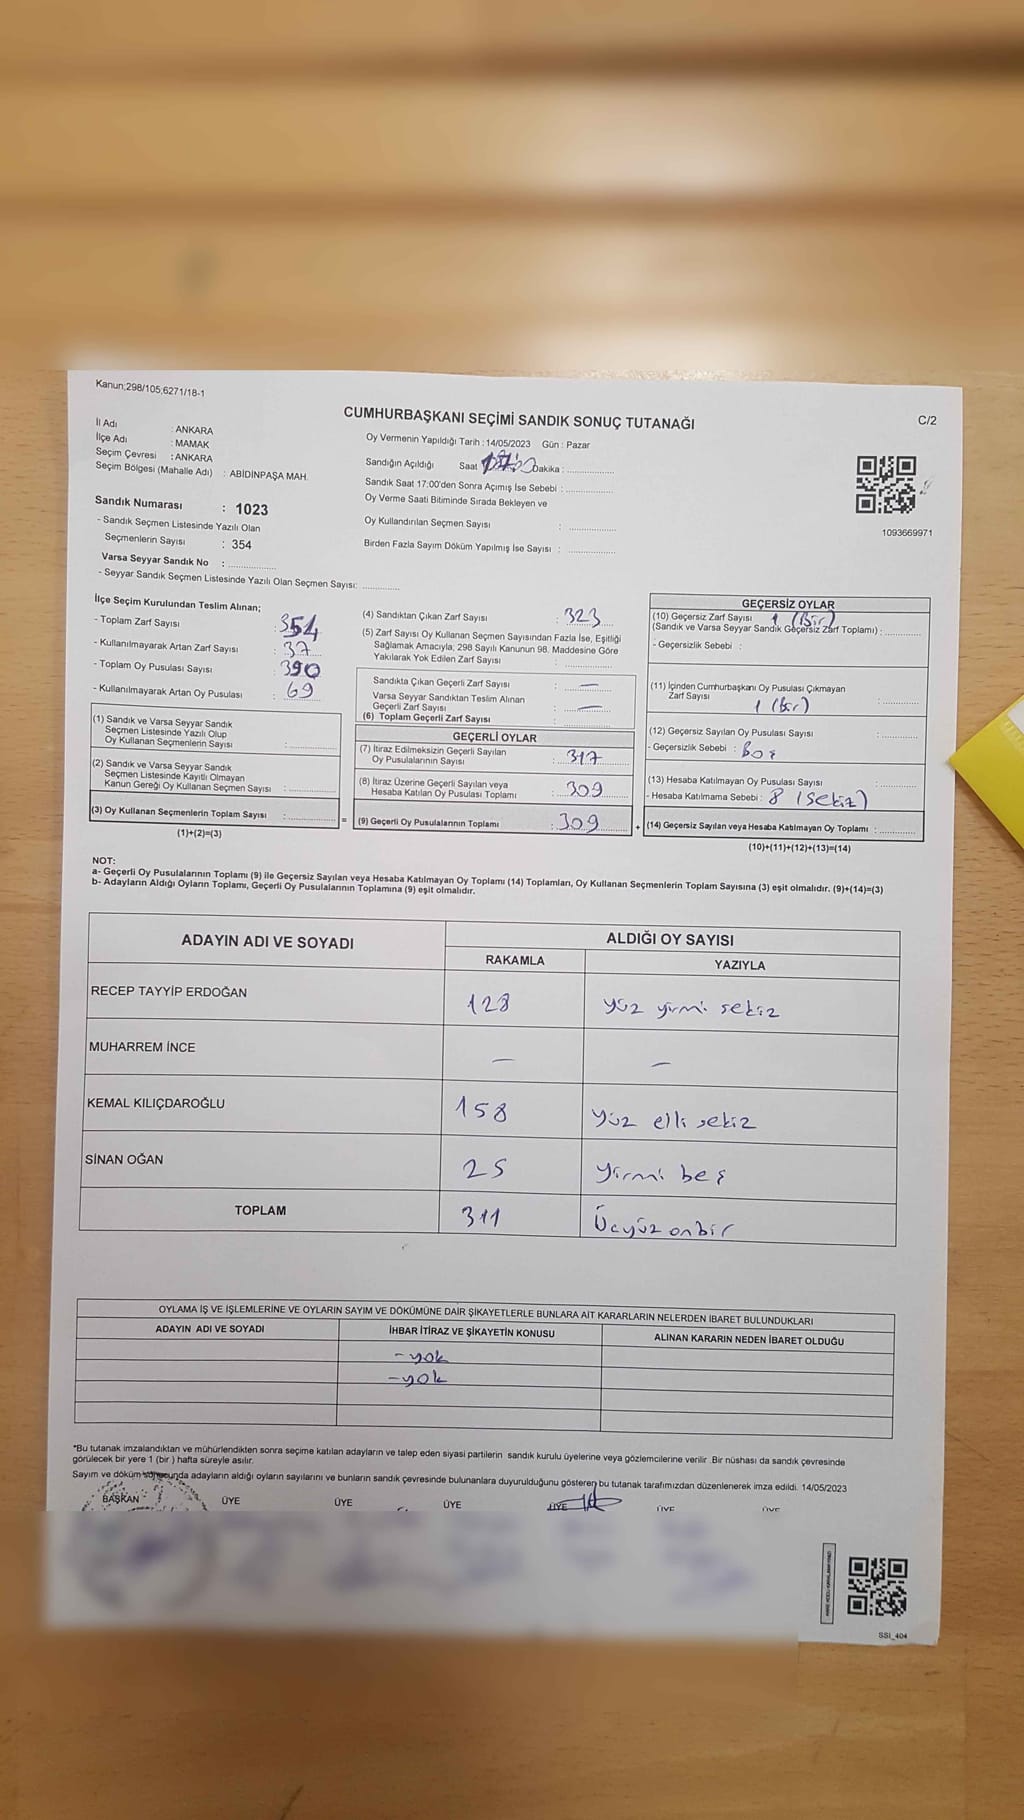 Kanun;298/105,6271/18-1
CUMHURBAŞKANI SEÇİMİ SANDIK SONUÇ TUTANAĞI
C/2
İl Adı : ANKARA
İlçe Adı : MAMAK
Seçim Çevresi : ANKARA
Seçim Bölgesi (Mahalle Adı) : ABİDİNPAŞA MAH.
Sandık Numarası : 1023
- Sandık Seçmen Listesinde Yazılı Olan
Seçmenlerin Sayısı : 354
Varsa Seyyar Sandık No :
- Seyyar Sandık Seçmen Listesinde Yazılı Olan Seçmen Sayısı:
Oy Vermenin Yapıldığı Tarih : 14/05/2023 Gün : Pazar
Sandığın Açıldığı Saat Dakika :
Sandık Saat 17:00'den Sonra Açımış İse Sebebi :
Oy Verme Saati Bitiminde Sırada Bekleyen ve
Oy Kullandırılan Seçmen Sayısı :
Birden Fazla Sayım Döküm Yapılmış İse Sayısı :
1093669971
İlçe Seçim Kurulundan Teslim Alınan;
- Toplam Zarf Sayısı : 354
- Kullanılmayarak Artan Zarf Sayısı : 37
- Toplam Oy Pusulası Sayısı : 390
- Kullanılmayarak Artan Oy Pusulası : 69
(1) Sandık ve Varsa Seyyar Sandık
Seçmen Listesinde Yazılı Olup
Oy Kullanan Seçmenlerin Sayısı :
(2) Sandık ve Varsa Seyyar Sandık
Seçmen Listesinde Kayıtlı Olmayan
Kanun Gereği Oy Kullanan Seçmen Sayısı :
(3) Oy Kullanan Seçmenlerin Toplam Sayısı :
(1)+(2)=(3)
=
(4) Sandıktan Çıkan Zarf Sayısı : 323
(5) Zarf Sayısı Oy Kullanan Seçmen Sayısından Fazla İse, Eşitliği
Sağlamak Amacıyla; 298 Sayılı Kanunun 98. Maddesine Göre
Yakılarak Yok Edilen Zarf Sayısı :
Sandıkta Çıkan Geçerli Zarf Sayısı : —
Varsa Seyyar Sandıktan Teslim Alınan
Geçerli Zarf Sayısı : —
(6) Toplam Geçerli Zarf Sayısı :
GEÇERLİ OYLAR
(7) İtiraz Edilmeksizin Geçerli Sayılan
Oy Pusulalarının Sayısı : 317
(8) İtiraz Üzerine Geçerli Sayılan veya
Hesaba Katılan Oy Pusulası Toplamı : 309
(9) Geçerli Oy Pusulalarının Toplamı : 309
+
GEÇERSİZ OYLAR
(10) Geçersiz Zarf Sayısı 1 (Bir)
(Sandık ve Varsa Seyyar Sandık Geçersiz Zarf Toplamı) :
- Geçersizlik Sebebi :
(11) İçinden Cumhurbaşkanı Oy Pusulası Çıkmayan
Zarf Sayısı : 1 (Bir)
(12) Geçersiz Sayılan Oy Pusulası Sayısı :
- Geçersizlik Sebebi : Boş
(13) Hesaba Katılmayan Oy Pusulası Sayısı :
- Hesaba Katılmama Sebebi : 8 (sekiz)
(14) Geçersiz Sayılan veya Hesaba Katılmayan Oy Toplamı :
(10)+(11)+(12)+(13)=(14)
NOT:
a- Geçerli Oy Pusulalarının Toplamı (9) ile Geçersiz Sayılan veya Hesaba Katılmayan Oy Toplamı (14) Toplamları, Oy Kullanan Seçmenlerin Toplam Sayısına (3) eşit olmalıdır. (9)+(14)=(3)
b- Adayların Aldığı Oyların Toplamı, Geçerli Oy Pusulalarının Toplamına (9) eşit olmalıdır.
ADAYIN ADI VE SOYADI ALDIĞI OY SAYISI
RAKAMLA YAZIYLA
RECEP TAYYİP ERDOĞAN 128 yüz yirmi sekiz
MUHARREM İNCE — —
KEMAL KILIÇDAROĞLU 158 yüz elli sekiz
SİNAN OĞAN 25 yirmi beş
TOPLAM 311 Üçyüz onbir
OYLAMA İŞ VE İŞLEMLERİNE VE OYLARIN SAYIM VE DÖKÜMÜNE DAİR ŞİKAYETLERLE BUNLARA AİT KARARLARIN NELERDEN İBARET BULUNDUKLARI
ADAYIN ADI VE SOYADI İHBAR İTİRAZ VE ŞİKAYETİN KONUSU ALINAN KARARIN NEDEN İBARET OLDUĞU
- yok
- yok
*Bu tutanak imzalandıktan ve mühürlendikten sonra seçime katılan adayların ve talep eden siyasi partilerin sandık kurulu üyelerine veya gözlemcilerine verilir. Bir nüshası da sandık çevresinde
görülecek bir yere 1 (bir ) hafta süreyle asılır.
Sayım ve döküm sonucunda adayların aldığı oyların sayılarını ve bunların sandık çevresinde bulunanlara duyurulduğunu gösteren bu tutanak tarafımızdan düzenlenerek imza edildi. 14/05/2023
BAŞKAN ÜYE ÜYE ÜYE ÜYE ÜYE ÜYE
SSI_404